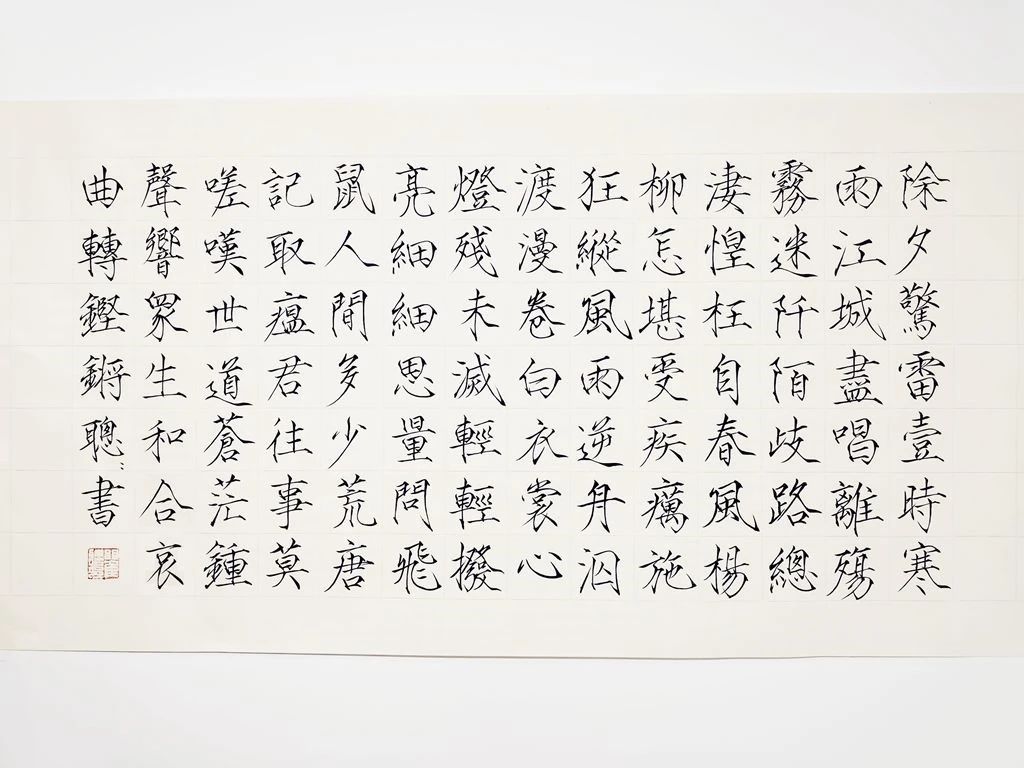 除夕驚雷壹時寒
雨江城盡唱離殤
霧迷阡陌歧路總
淒惶枉自春風楊
柳怎堪受疾癘施
狂縱風雨逆舟泅
渡漫卷白衣裳心
燈殘未滅輕輕撥
亮細細思量問飛
鼠人間多少荒唐
記取瘟君往事莫
嗟嘆世道蒼茫鍾
聲響眾生和合哀
曲轉鏗鏘聰〻書